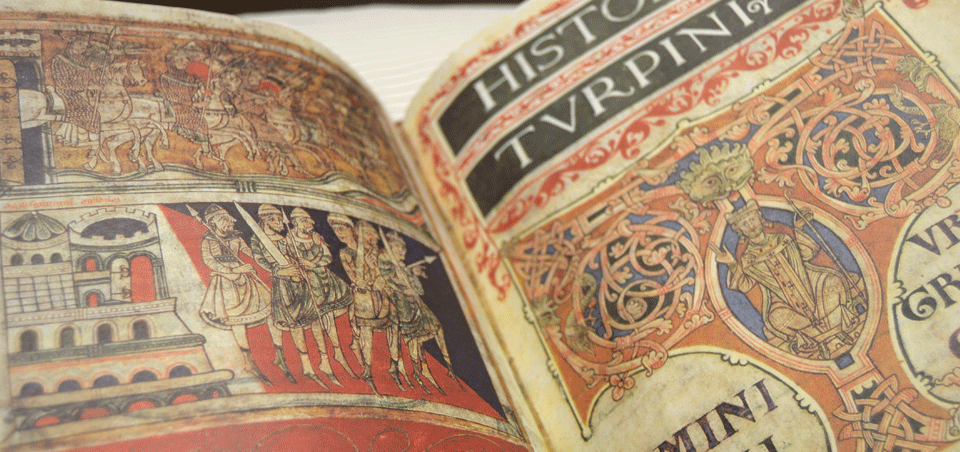 HISTO
TVRPINI
VR
GR
MINI